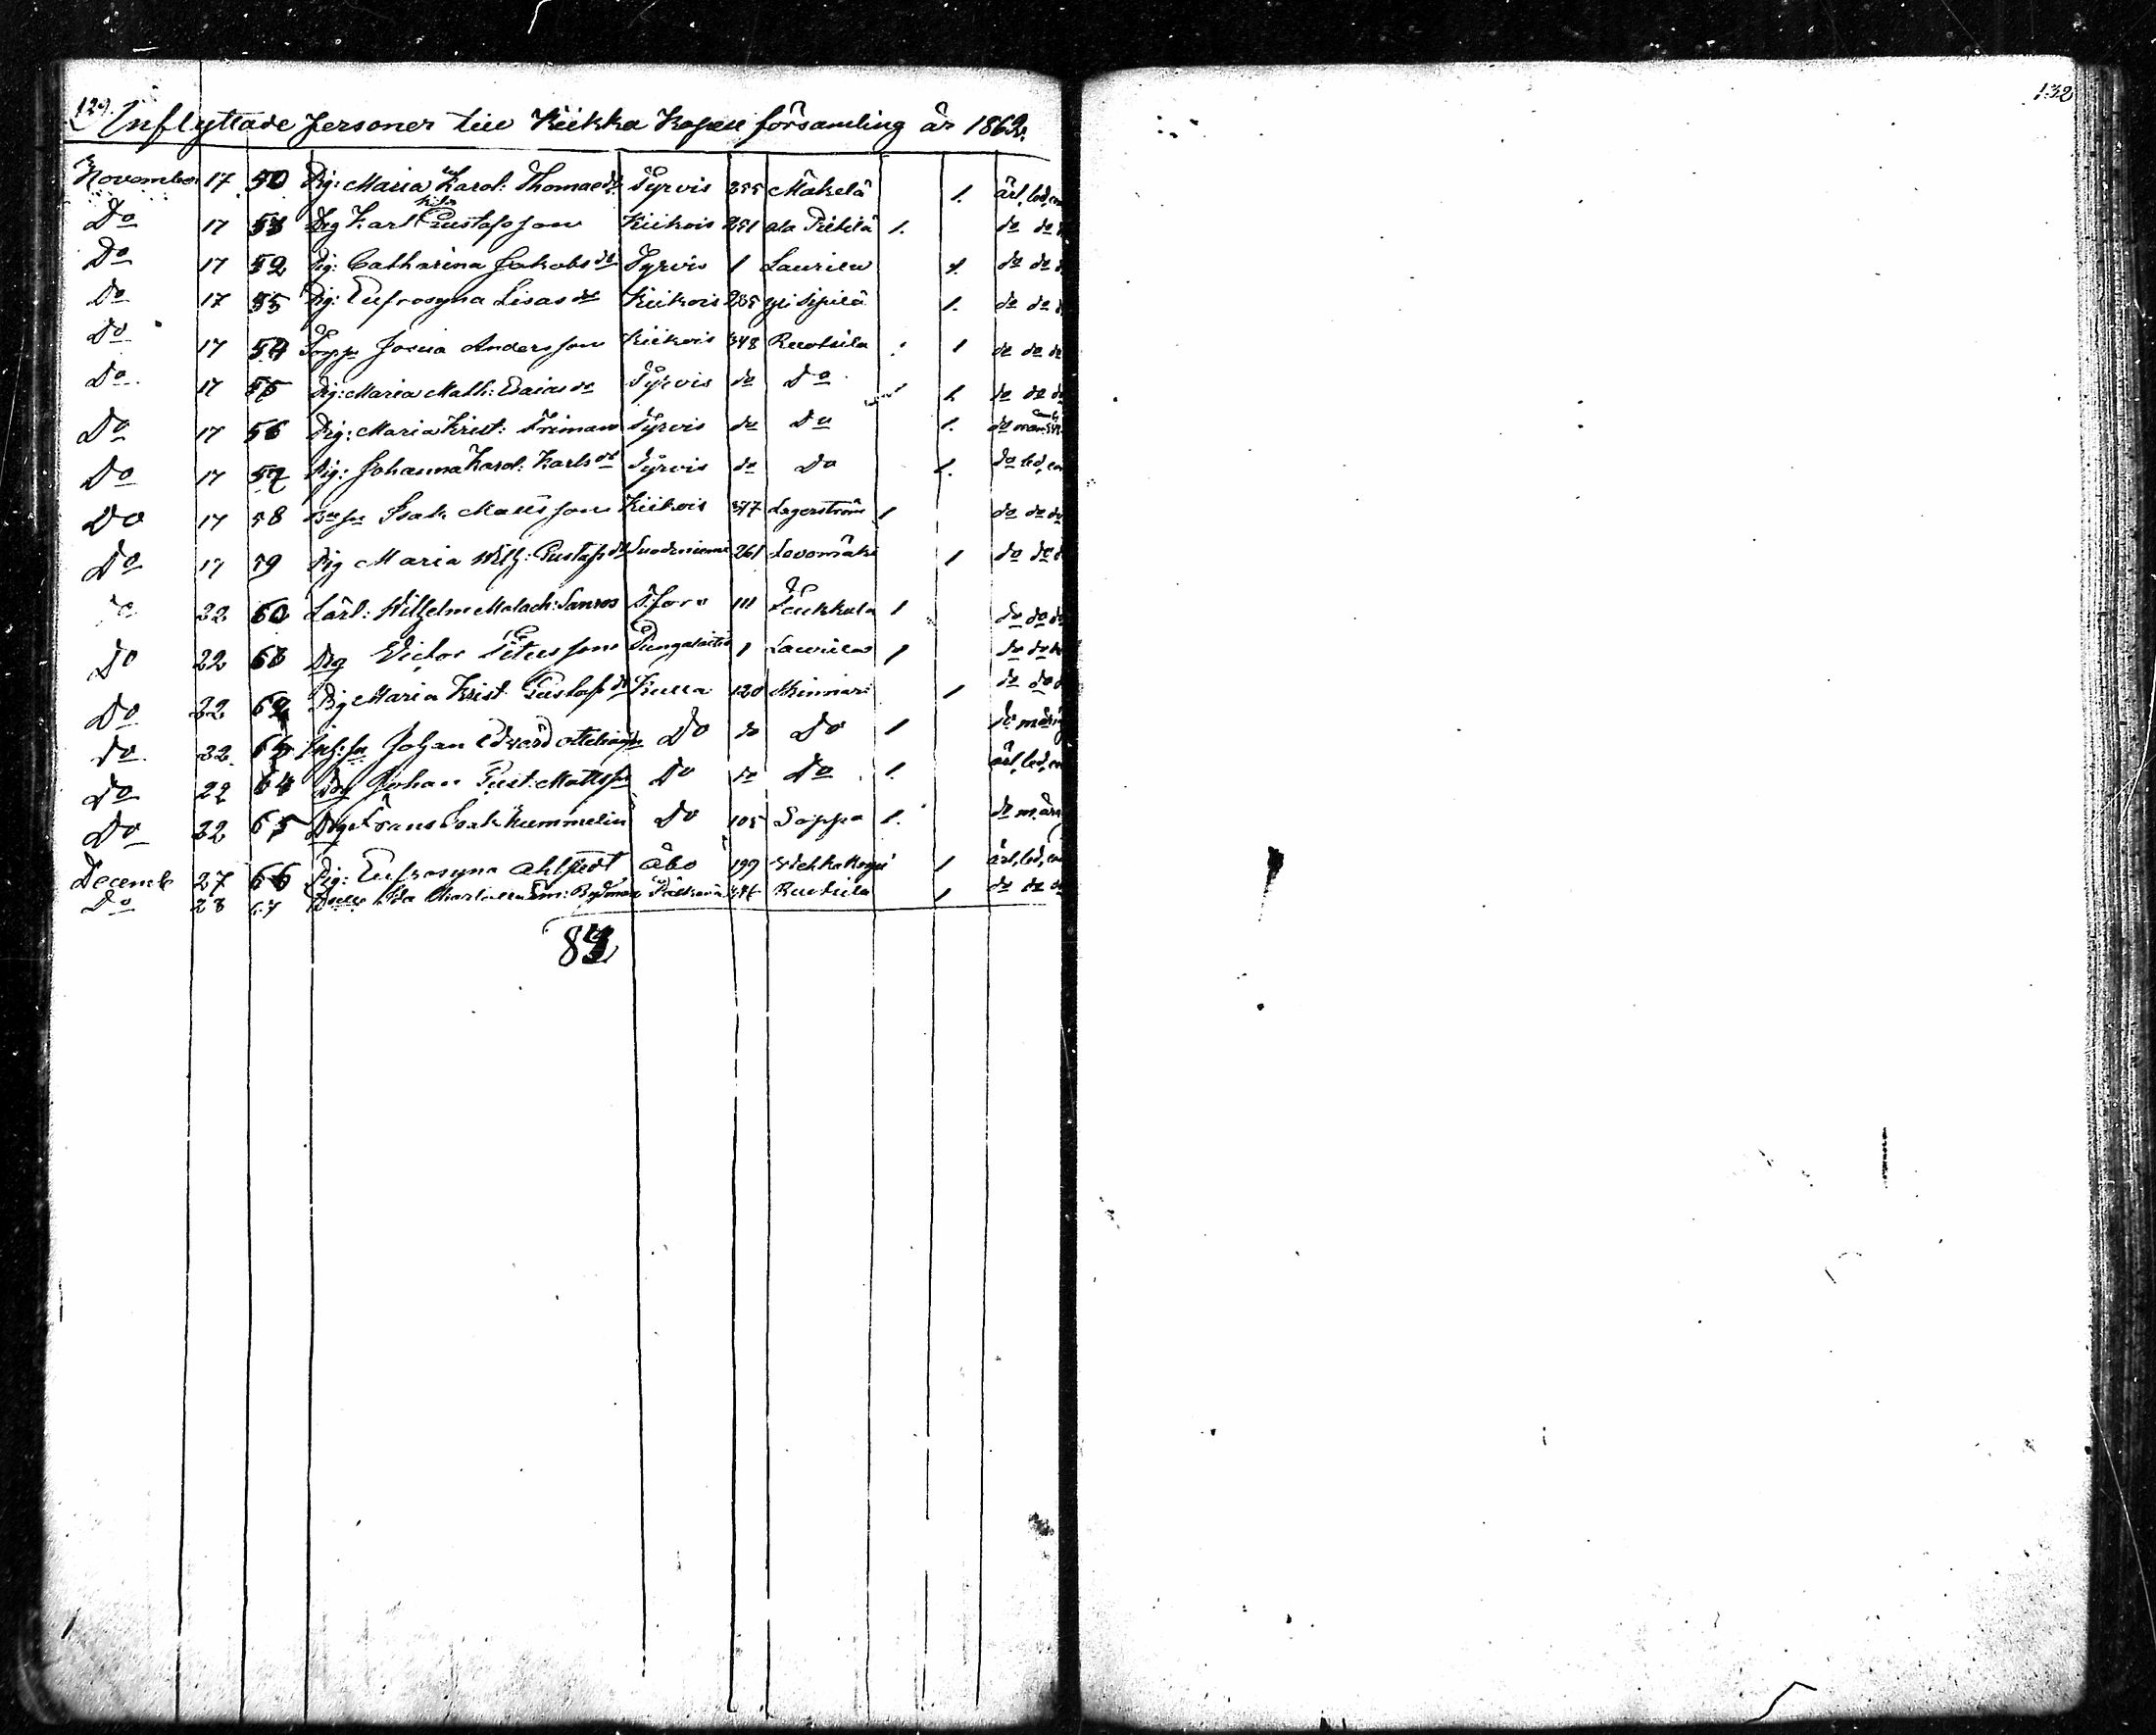 129.
Inflyttade personer till Kiikka Kapell församling år 1862.
November 17 50 Pig: Maria Karol: Thomaedr Tyrvis 355 Mäkelä 1. ärl, led,
Do 17 51 Drg Karl Gustafsson Kiikois 251 ala Pietilä 1. do do
Do 17 52 Pig: Catharina Jakobsdr Tyrvis 1 Laurila 1. do do
Do 17 53 Pig: Eufrosyna Lisasdr Kiikois 235 yli Sipilä 1. do do
Do 17 54 Torpp Josua Andersson Kiikois 348 Ruotsila 1 1 do do do
Do 17 55 Pig: Maria Math: Esaiasdr Tyrvis do Do 1 1. do do do
Do 17 56 Pig: Maria Krist: Friman Tyrvis do Do 1. do
Do 17 57 Pig: Johanna Karol: Karlsdr Tyrvis do Do 1. do led,
Do 17 58 Isak Mattsson Kiikois 347 Lagerström 1 do do do
Do 17 59 Pig Maria Wilh: Gustafsdr Suodeniemi 261 Levomäki 1 do do
22 60 Lärl: Wilhelm Malach: Sanros 111 Teukkula 1 do do do
Do 22 61 Drg Victor Titusson Pungalaitio 1 Laurila 1 do do
Do 22 62 Pig Maria Krist Gustafsdr Kulla 120 Kinnari 1 do do
Do 22 63 Johan Edvard Do do Do 1 do
Do 22 64 Drg Johan Gust: Mattsson Do do Do 1. ärl, led,
Do 22 65 Drg Frans Isak Kummelin Do 105 Soppa 1. do
Decemb 27 66 Pig: Eufrosyna Ahlstedt Åbo 199 1 ärl, led,
Do 28 67 Ida Charlotta Em: Rydman 346 Ruotsila 1 do do do
83
132